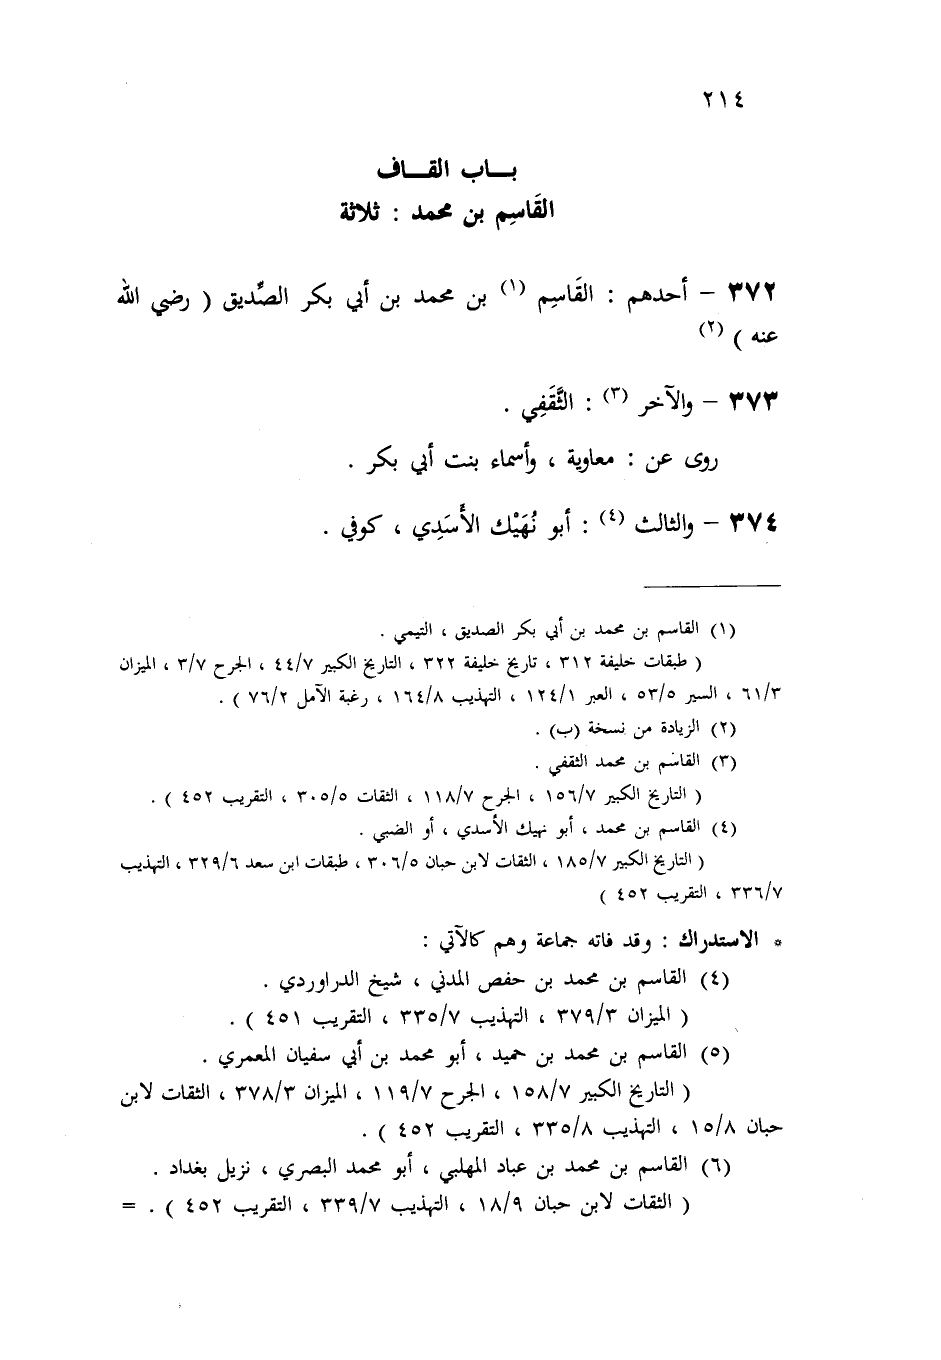 ٢١٤
بـــاب القـــاف
القَاسِم بن محمد : ثلاثة
٣٧٢ – أحدهم : القَاسِم (١) بن محمد بن أبي بكر الصِّديق ( رضي الله
عنه ) (٢)
٣٧٣ – والآخر (٣) : الثَّقَفِي .
روى عن : معاوية ، وأسماء بنت أبي بكر .
٣٧٤ – والثالث (٤) : أبو نُهَيْك الأَسَدِي ، كوفي .
(١) القاسم بن محمد بن أبي بكر الصديق ، التيمي .
( طبقات خليفة ٣١٢ ، تاريخ خليفة ٣٢٢ ، التاريخ الكبير ٤٤/٧ ، الجرح ٣/٧ ، الميزان
٦١/٣ ، السير ٥٣/٥ ، العبر ١٢٤/١ ، التهذيب ١٦٤/٨ ، رغبة الآمل ٧٦/٢ ) .
(٢) الزيادة من نسخة (ب) .
(٣) القاسم بن محمد الثقفي .
( التاريخ الكبير ١٥٦/٧ ، الجرح ١١٨/٧ ، الثقات ٣٠٥/٥ ، التقريب ٤٥٢ ) .
(٤) القاسم بن محمد ، أبو نهيك الأسدي ، أو الضبي .
( التاريخ الكبير ١٨٥/٧ ، الثقات لابن حبان ٣٠٦/٥ ، طبقات ابن سعد ٣٢٩/٦ ، التهذيب
٣٣٦/٧ ، التقريب ٤٥٢ )
* الاستدراك : وقد فاته جماعة وهم كالآتي :
(٤) القاسم بن محمد بن حفص المدني ، شيخ الدراوردي .
( الميزان ٣٧٩/٣ ، التهذيب ٣٣٥/٧ ، التقريب ٤٥١ ) .
(٥) القاسم بن محمد بن حميد ، أبو محمد بن أبي سفيان المعمري .
( التاريخ الكبير ١٥٨/٧ ، الجرح ١١٩/٧ ، الميزان ٣٧٨/٣ ، الثقات لابن
حبان ١٥/٨ ، التهذيب ٣٣٥/٨ ، التقريب ٤٥٢ ) .
(٦) القاسم بن محمد بن عباد المهلبي ، أبو محمد البصري ، نزيل بغداد .
( الثقات لابن حبان ١٨/٩ ، التهذيب ٣٣٩/٧ ، التقريب ٤٥٢ ) . =